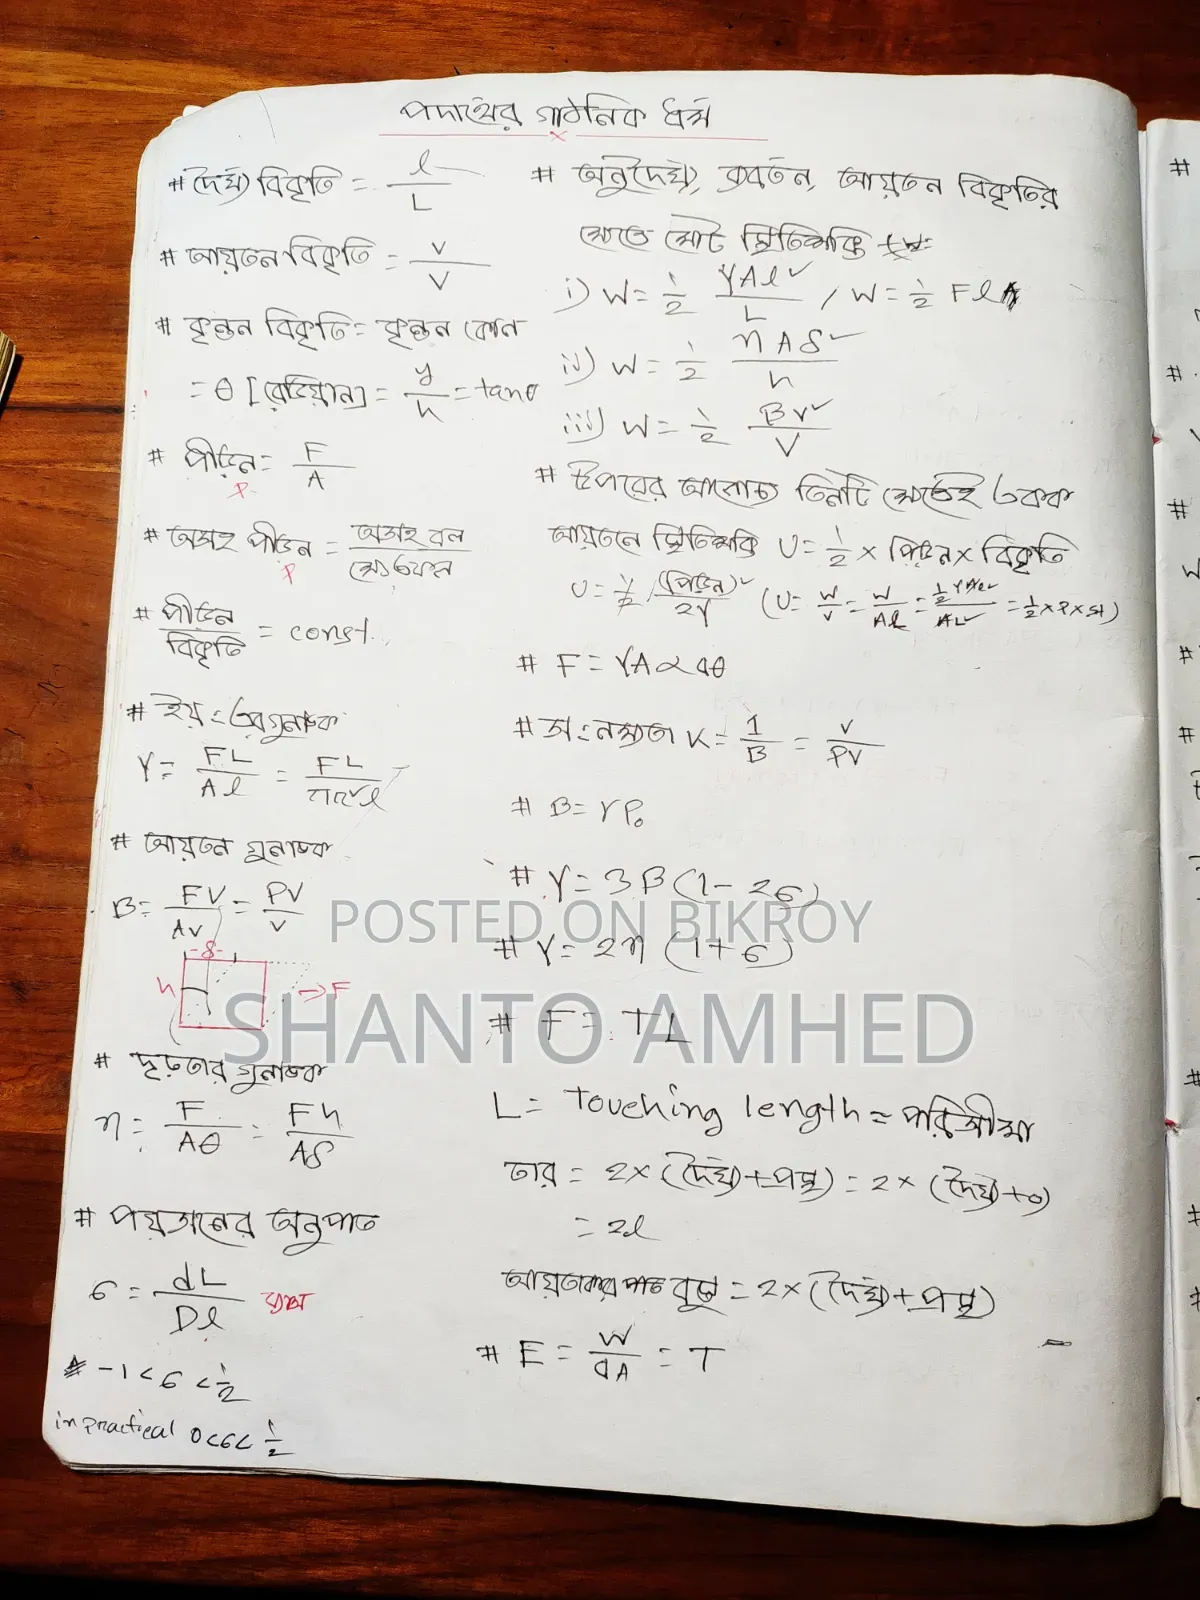 পদার্থের গাঠনিক ধর্ম
# দৈর্ঘ্য বিকৃতি = l/L
# আয়তন বিকৃতি = v/V
# কৃন্তন বিকৃতি = কৃন্তন কোন
= θ [রেডিয়ান] = y/h = tanθ
# পীড়ন = F/A
P
# অসহ পীড়ন = অসহ বল/ক্ষেত্রফল
P
# পীড়ন/বিকৃতি = const.
# ইয়ং এর গুনাঙ্ক
Y = FL/Al = FL/πr²l
# আয়তন গুনাঙ্ক
B = FV/Av = PV/v
δ
h → F
# দৃঢ়তার গুনাঙ্ক
η = F/Aθ = Fh/Aδ
# পয়সনের অনুপাত
σ = dL/Dl
-1 < σ < 1/2
in practical 0<σ< 1/2
# অনুদৈর্ঘ্য, ব্যবর্তন, আয়তন বিকৃতির
ক্ষেত্রে মোট স্থিতিশক্তি
i) W = 1/2 YAl²/L / W = 1/2 Fl
ii) W = 1/2 ηAδ²/h
iii) W = 1/2 Bv²/V
# উপরের আলোচ্য তিনটি ক্ষেত্রেই একক
আয়তনে স্থিতিশক্তি U = 1/2 × পিড়ন × বিকৃতি
(পিড়ন)²/2Y
# F = YAαΔθ
# সংনম্যতা K = 1/B = v/PV
# B = γP₀
# Y = 3B(1-2σ)
# Y = 2η (1+σ)
# F = TL
L = Touching length = পরিসীমা
তার = 2×(দৈর্ঘ্য+প্রস্থ) = 2×(দৈর্ঘ্য+0)
= 2l
আয়তাকার পাত = 2×(দৈর্ঘ্য+প্রস্থ)
# E = W/ΔA = T
POSTED ON BIKROY
SHANTO AMHED